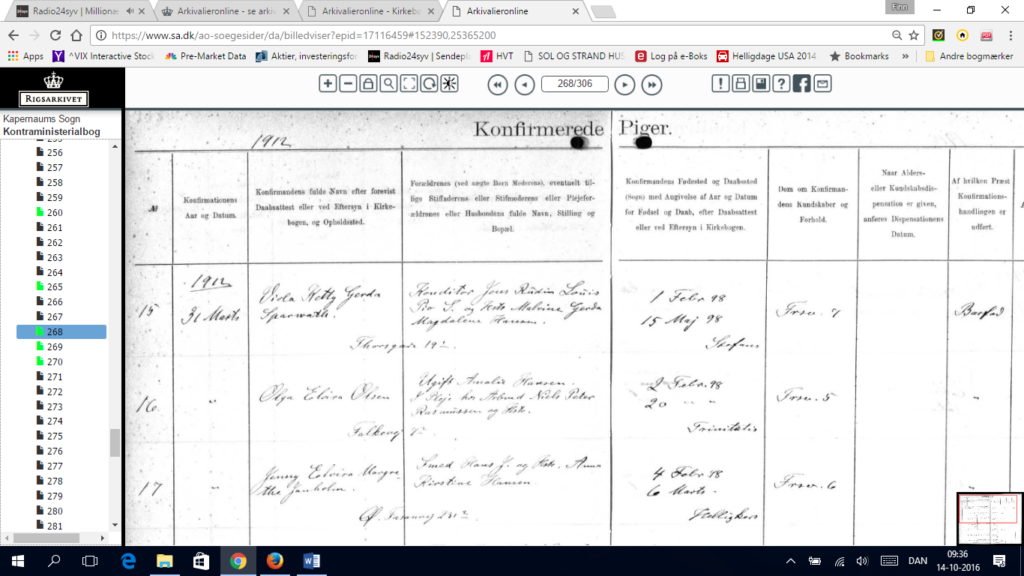 Finn
Radio24syv | Millionæ
Arkivalieronline - se arki
Arkivalieronline - Kirkeb
Arkivalieronline
https://www.sa.dk/ao-soegesider/da/billedviser?epid=17116459#152390,25365200
Apps
^VIX Interactive Stoc
Pre-Market Data
Aktier, investeringsfor
Radio24syv | Sendepl
HVT
SOL OG STRAND HUS
Log på e-Boks
Helligdage USA 2014
Bookmarks
»
Andre bogmærker
RIGSARKIVET
268/306
Kapernaums Sogn
Kontraministerialbog
256
257
258
259
260
261
262
263
264
265
266
267
268
269
270
271
272
273
274
275
276
277
278
279
280
281
1912
Konfirmerede Piger.
№
Konfirmationens
Aar og Datum.
Konfirmandens fulde Navn efter forevist
Daabsattest eller ved Eftersyn i Kirke-
bogen, og Opholdssted.
Forældrenes (ved uægte Børn Moderens), eventuelt til-
lige Stiffaderens eller Stifmoderens eller Plejefor-
ældrenes eller Husbondens fulde Navn, Stilling og
Bopæl.
Konfirmandens Fødested og Daabssted
(Sogn) med Angivelse af Aar og Datum
for Fødsel og Daab, efter Daabsattest
eller ved Eftersyn i Kirkebogen.
Dom om Konfirman-
dens Kundskaber og
Forhold.
Naar Alders-
eller Kundskabsdis-
pensation er given,
anføres Dispensationens
Datum.
Af hvilken Præst
Konfirmations-
handlingen er
udført.
15
1912
31 Marts
Viola Ketty Gerda
Konditor Jens Rudin Louis
Bro S. og Hstr Malvine Gerda
Magdalene Hansen.
Thorsgade 19
1 Febr 98
15 Maj 98
Stefans
16
"
Olga Elvira Olsen
Falkevej
Ugift Amalie Hansen.
I Pleje hos Arbmd Niels Peter
Rasmussen og Hstr.
2 Febr. 98
20 " "
Trinitatis
17
"
Jenny Elvira Margre-
the
Ø.
Smed Hans J. og Hstr. Anna
Kirstine Hansen
4 Febr 98
6 Marts.
DAN
09:36
14-10-2016